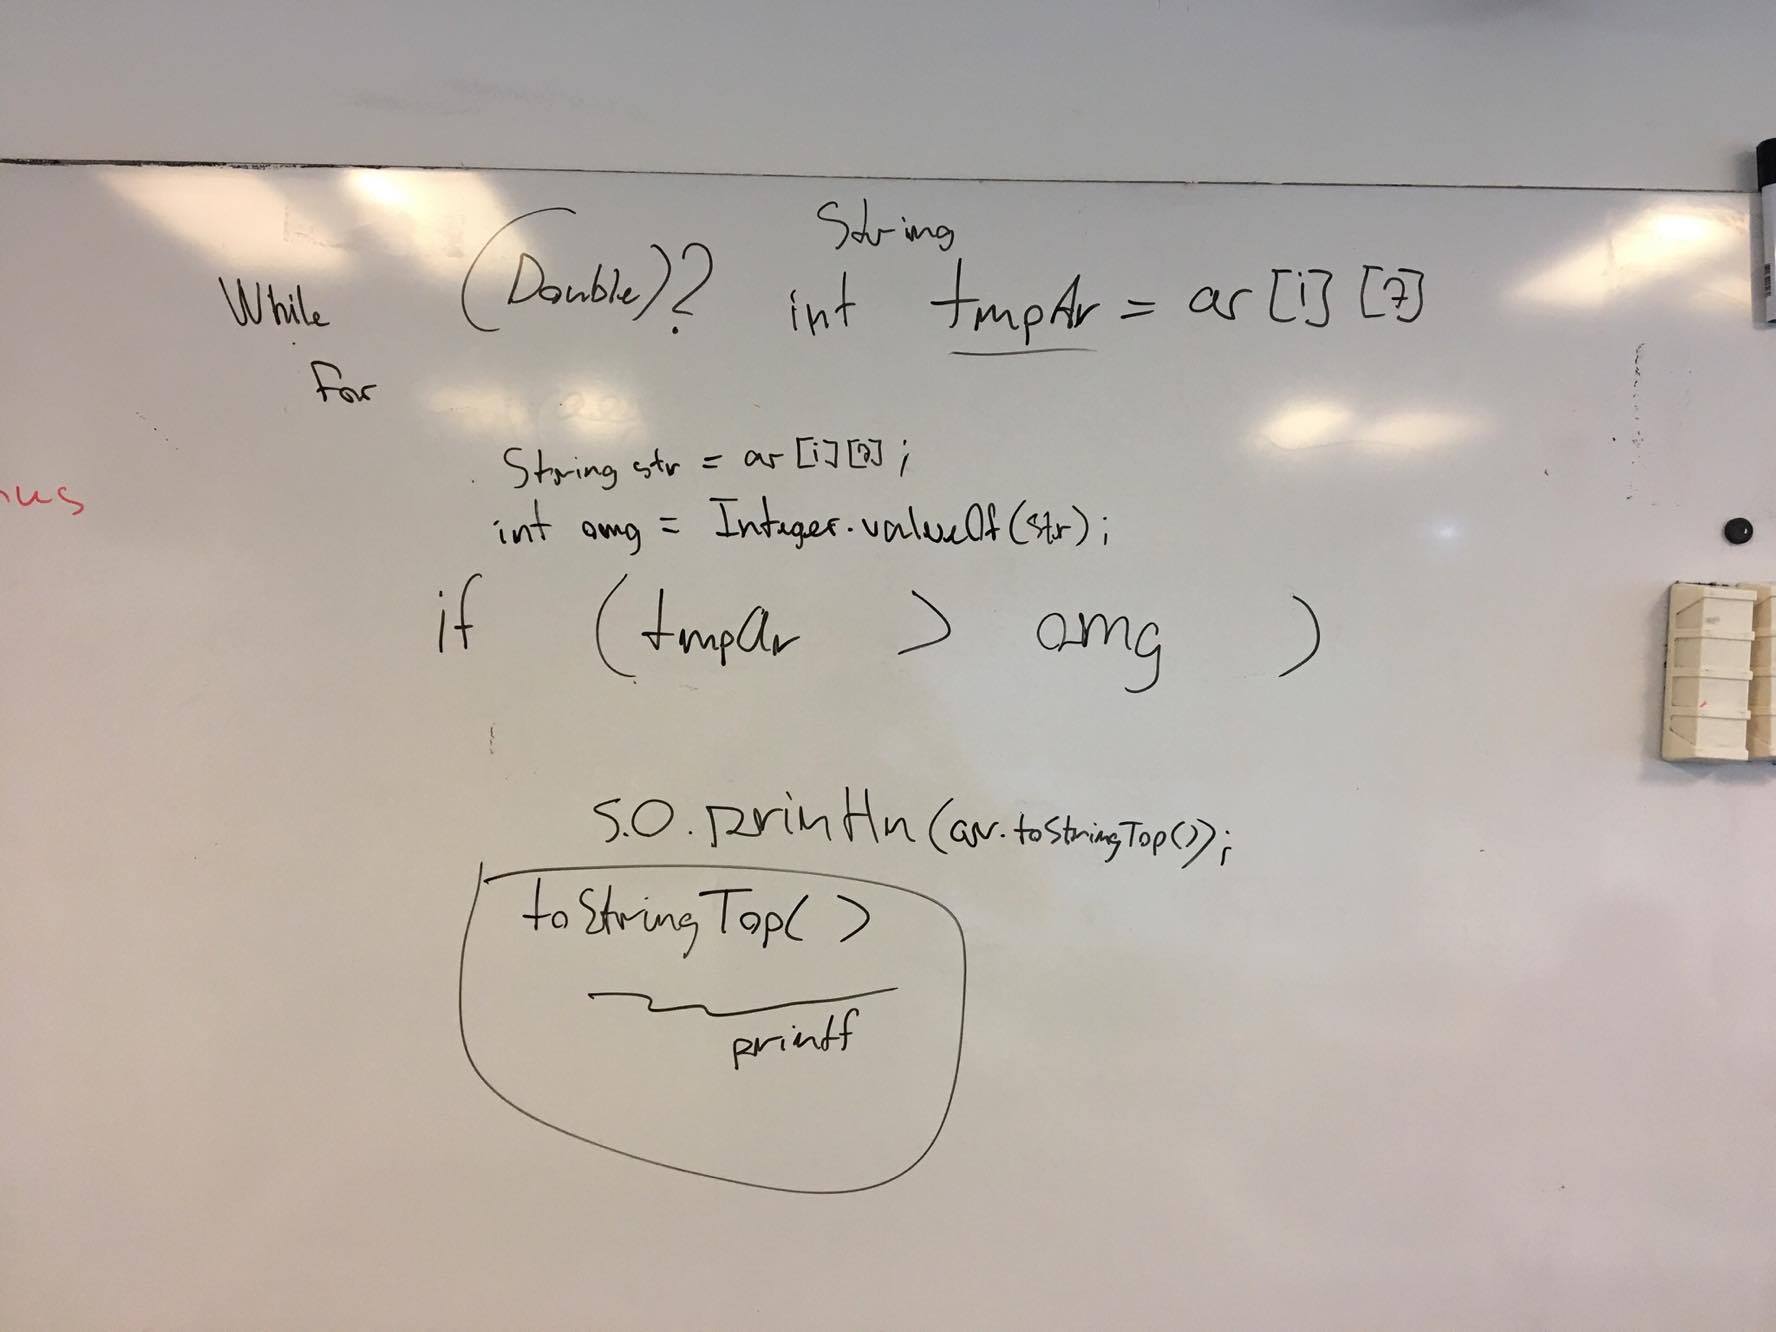 String
While (Double)? int tmpAr = ar[i][7]
for
String str = ar[i][7];
nus
int omg = Integer.valueOf(str);
if (tmpAr > omg )
S.O.println(ar.toStringTop());
toStringTop()
printf